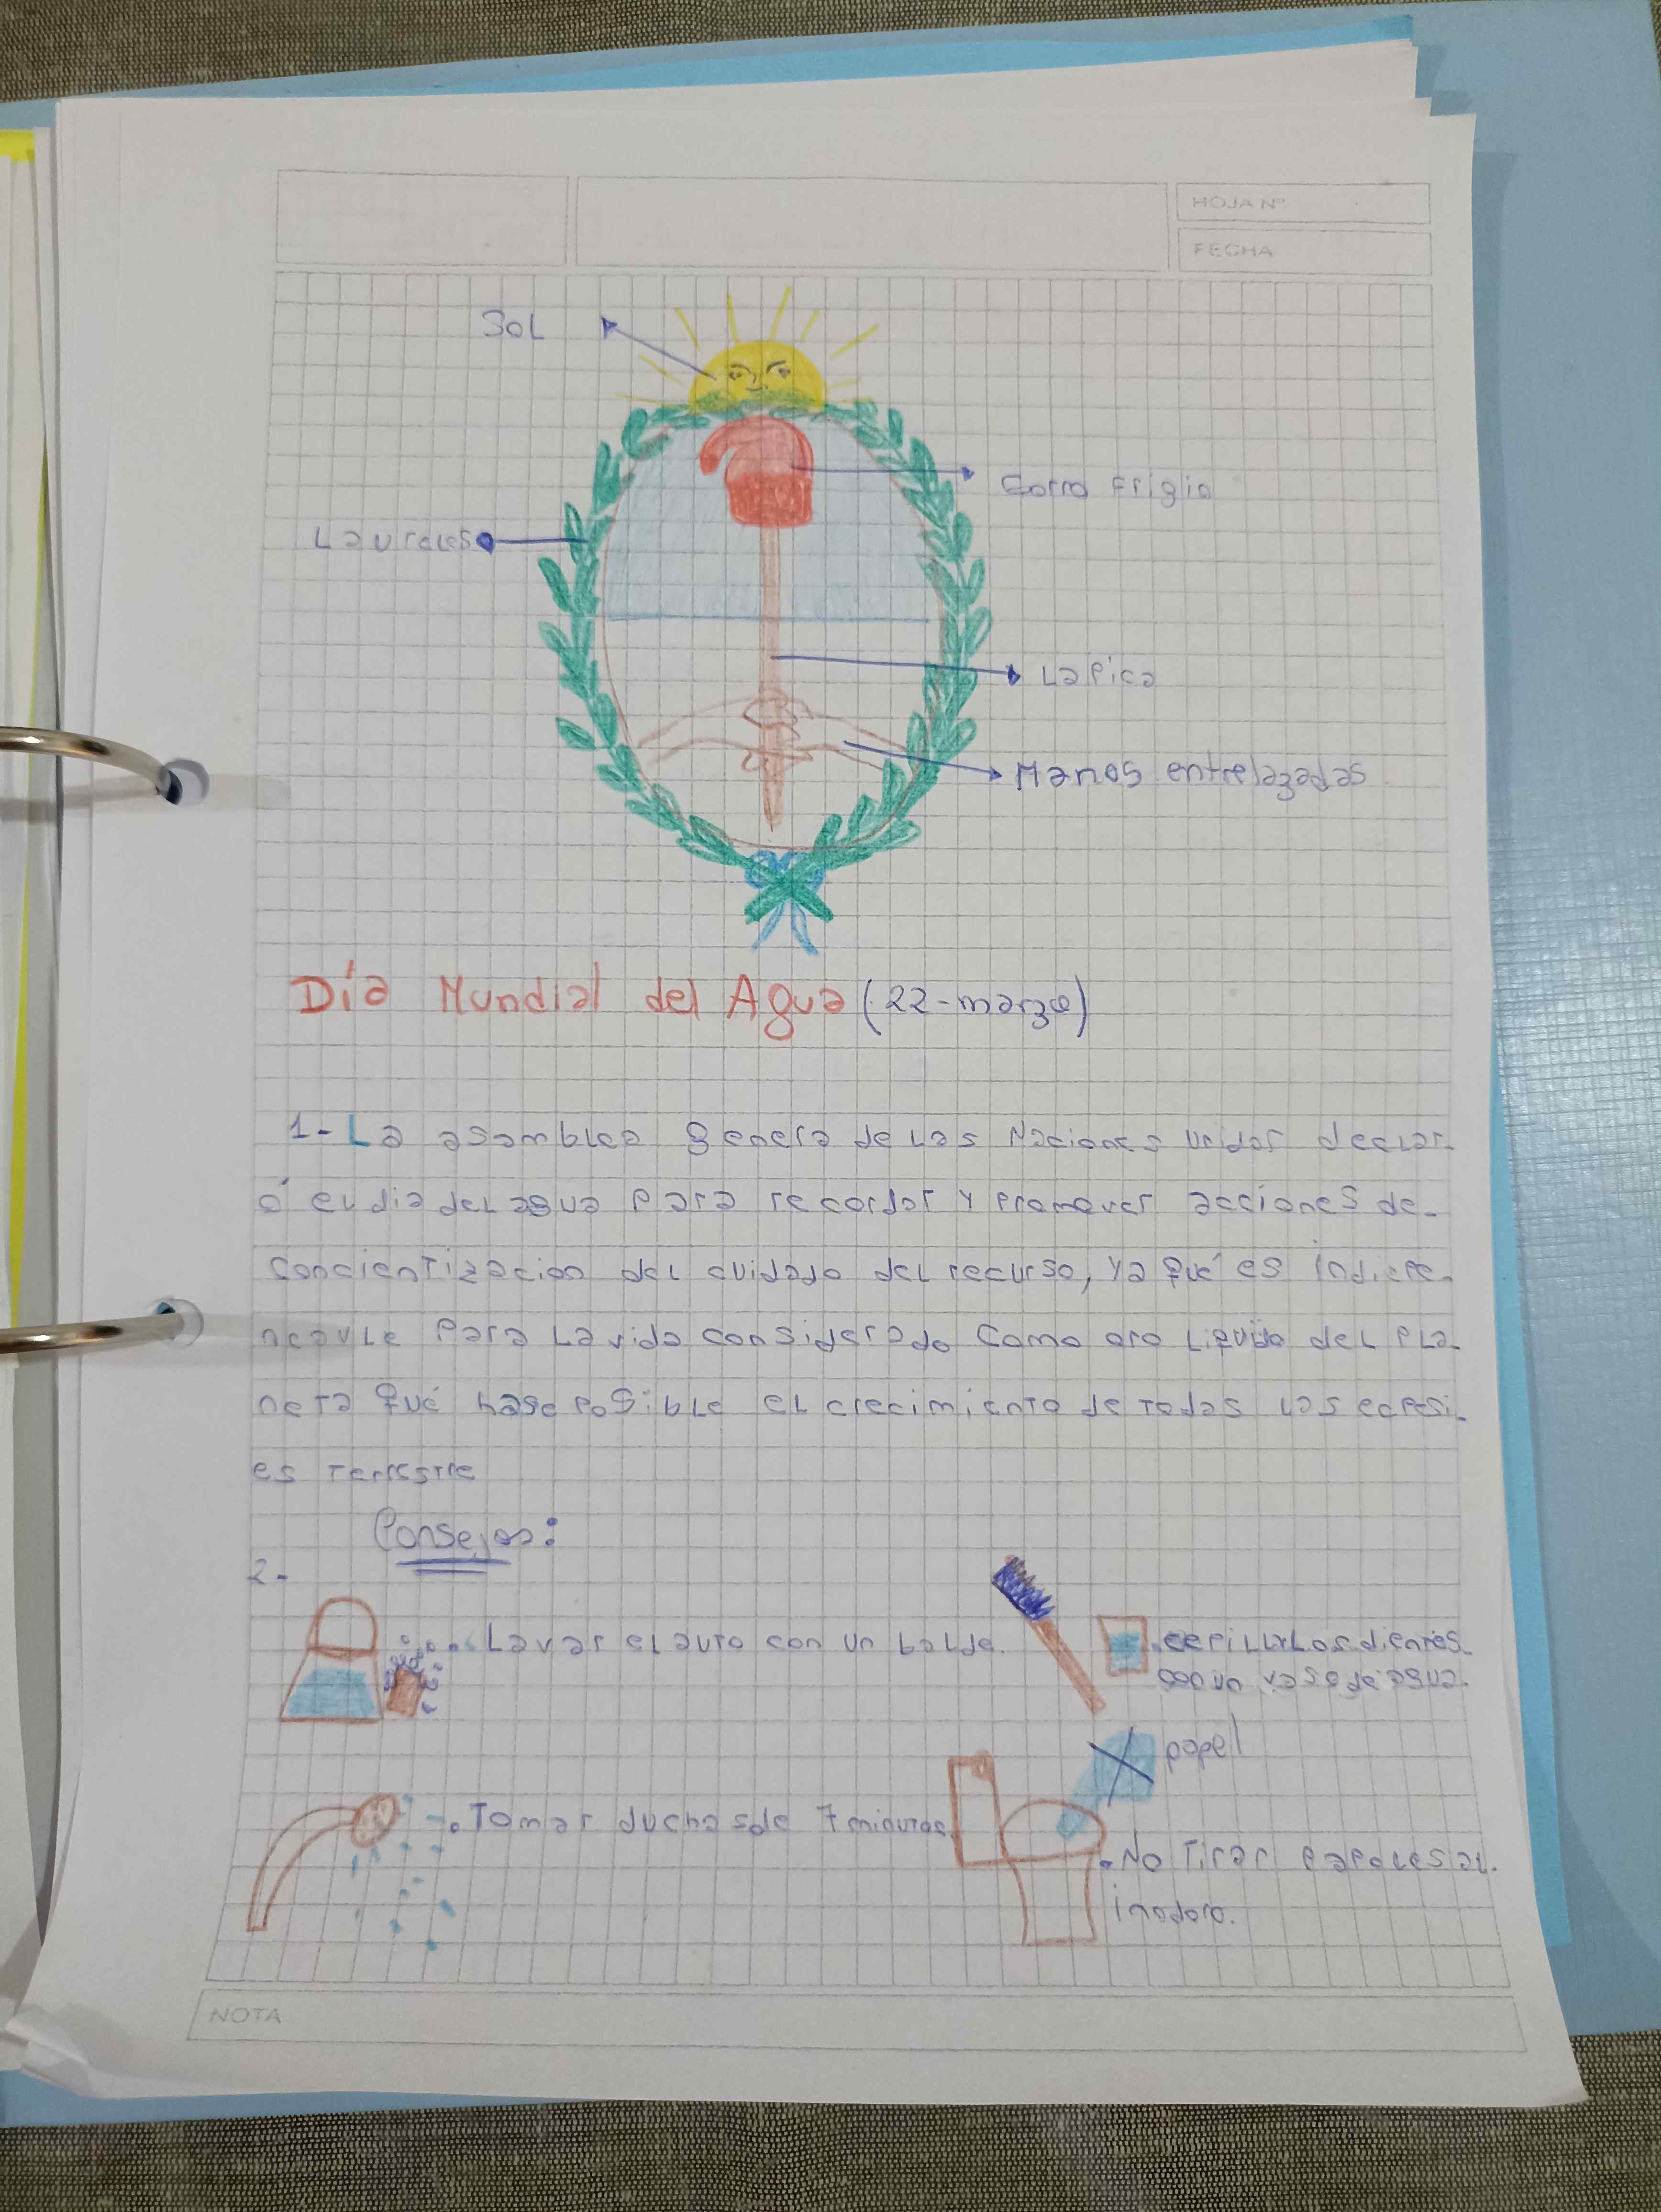 HOJA Nº
FECHA
Sol
Corro Frigio
Laureles
La Pica
Manos entrelazadas
Día Mundial del Agua (22-marzo)
1- La asamblea genera de Las Naciones unidas declar-
ó el dia del agua para recordar y promover acciones de-
concientizacion del cuidado del recurso, ya qué es indispe-
neavle para La vida considerado como oro liquido del pla-
neta qué hase posible el crecimiento de todas Las
es terrestre
Consejos:
2-
Lavar el auto con un balde.
Los dientes
con un vaso de agua.
papel
Tomar duchas de 7 minutos
No Tirar papeles al.
inodoro.
NOTA